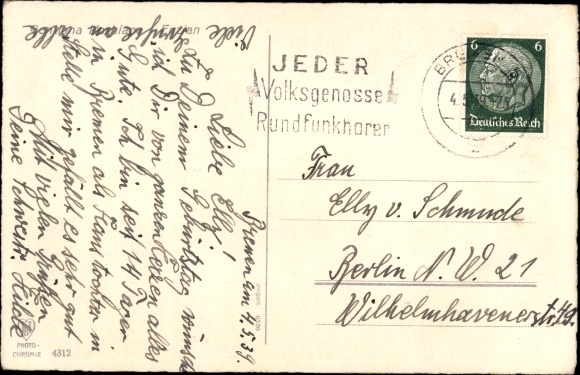 Viele
Bremen am 4.5.39.
Liebe Elly!
Zu Deinem Geburtstag wünsche
ich Dir von ganzem Herzen alles
Gute. Ich bin seit 14 Tagen
in Bremen als Haustochter in
Stelle mir gefällt es sehr gut
Mit vielen Grüßen
Deine Schwester
PHOTO-
CHROMIE 4312
JEDER
Volksgenosse
Rundfunkhörer
BREMEN
6 6
Deutsches Reich
Frau
Elly v. Schmude
Berlin N. W. 21
Wilhelmhavenerstr. 49.